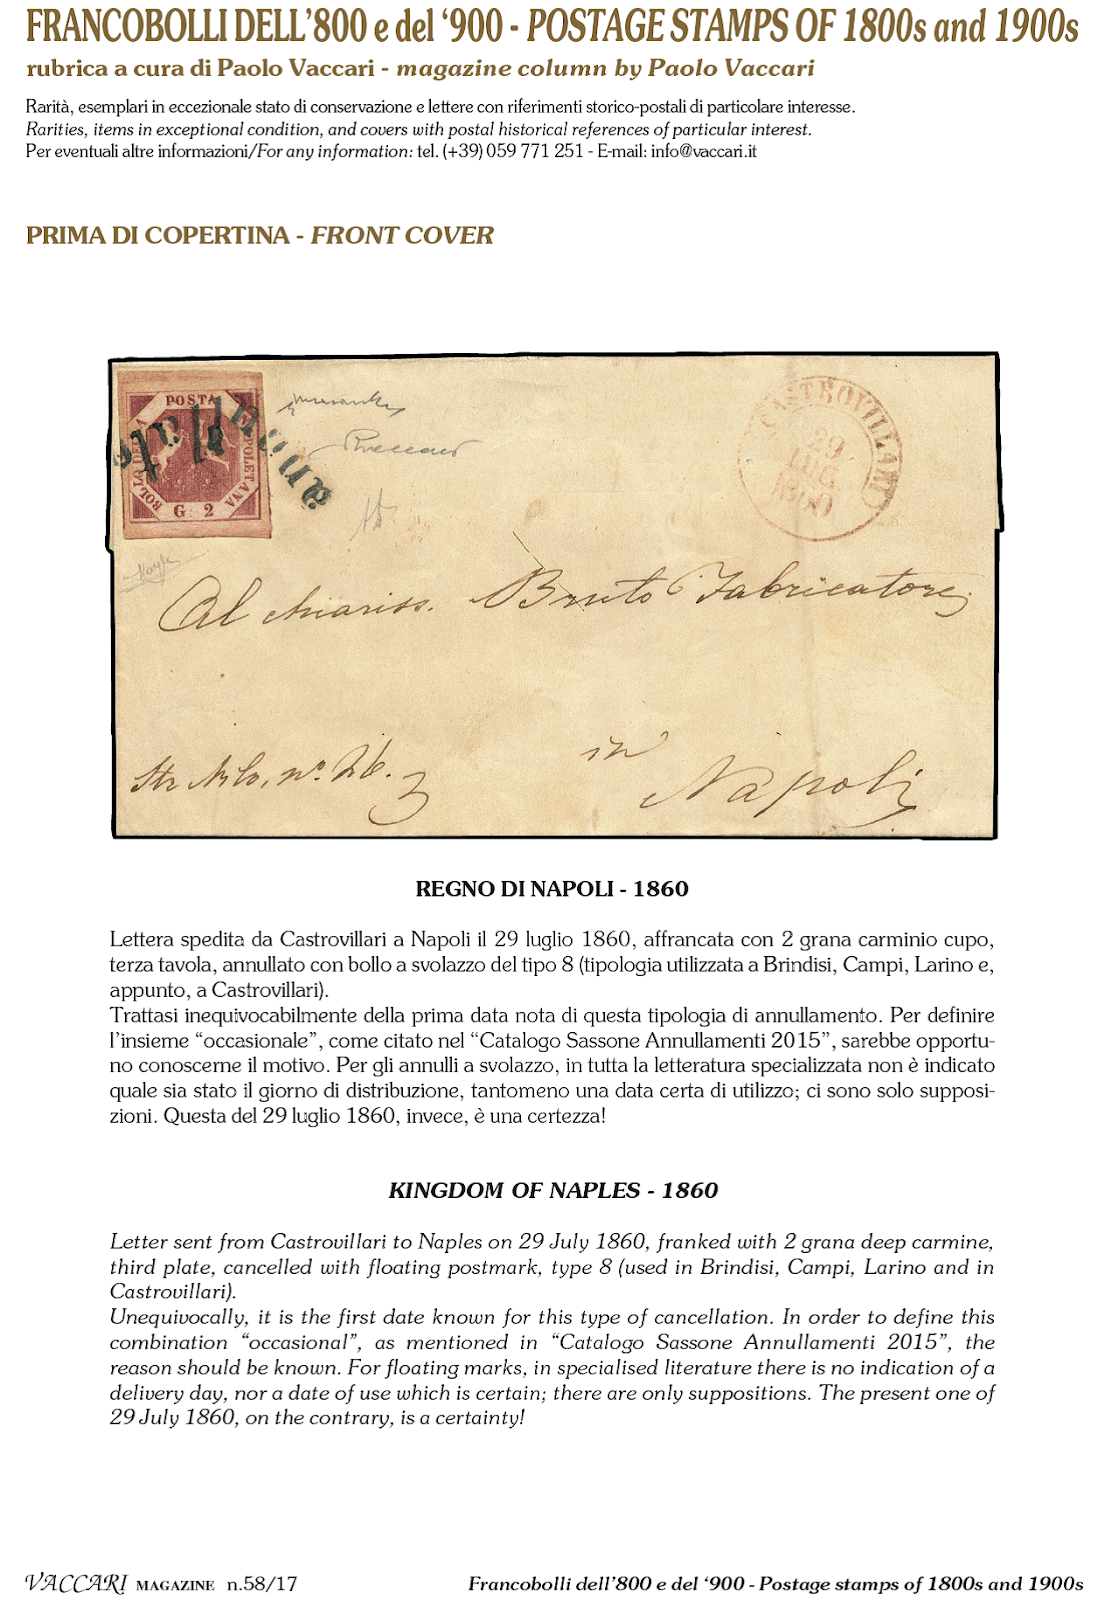 FRANCOBOLLI DELL’800 e del ‘900 - POSTAGE STAMPS OF 1800s and 1900s
rubrica a cura di Paolo Vaccari - magazine column by Paolo Vaccari
Rarità, esemplari in eccezionale stato di conservazione e lettere con riferimenti storico-postali di particolare interesse.
Rarities, items in exceptional condition, and covers with postal historical references of particular interest.
Per eventuali altre informazioni/For any information: tel. (+39) 059 771 251 - E-mail: info@vaccari.it
PRIMA DI COPERTINA - FRONT COVER
POSTA
NAPOLETANA
BOLLO DELLA
G 2
annullato
CASTROVILLARI
29
LUG
1860
Al chiariss. Bruto Fabricatore
Str Nilo, n.º 26.
in
Napoli
REGNO DI NAPOLI - 1860
Lettera spedita da Castrovillari a Napoli il 29 luglio 1860, affrancata con 2 grana carminio cupo,
terza tavola, annullato con bollo a svolazzo del tipo 8 (tipologia utilizzata a Brindisi, Campi, Larino e,
appunto, a Castrovillari).
Trattasi inequivocabilmente della prima data nota di questa tipologia di annullamento. Per definire
l’insieme “occasionale”, come citato nel “Catalogo Sassone Annullamenti 2015”, sarebbe opportu-
no conoscerne il motivo. Per gli annulli a svolazzo, in tutta la letteratura specializzata non è indicato
quale sia stato il giorno di distribuzione, tantomeno una data certa di utilizzo; ci sono solo supposi-
zioni. Questa del 29 luglio 1860, invece, è una certezza!
KINGDOM OF NAPLES - 1860
Letter sent from Castrovillari to Naples on 29 July 1860, franked with 2 grana deep carmine,
third plate, cancelled with floating postmark, type 8 (used in Brindisi, Campi, Larino and in
Castrovillari).
Unequivocally, it is the first date known for this type of cancellation. In order to define this
combination “occasional”, as mentioned in “Catalogo Sassone Annullamenti 2015”, the
reason should be known. For floating marks, in specialised literature there is no indication of a
delivery day, nor a date of use which is certain; there are only suppositions. The present one of
29 July 1860, on the contrary, is a certainty!
VACCARI MAGAZINE n.58/17
Francobolli dell’800 e del ‘900 - Postage stamps of 1800s and 1900s